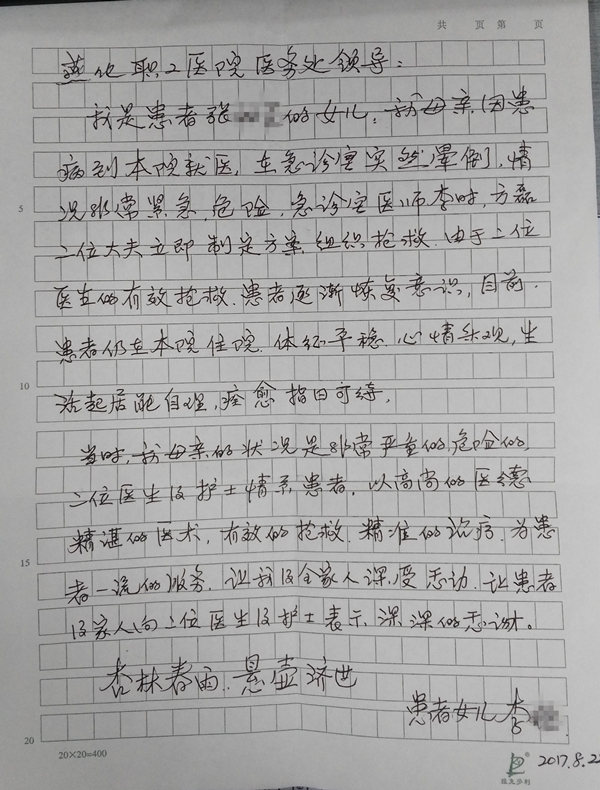 共 页 第 页
燕化职工医院医务处领导:
我是患者张 的女儿,我母亲因患
病到本院就医,在急诊室突然晕倒,情
5
况非常紧急、危险,急诊室医师李时、方磊
二位大夫立即制定方案组织抢救.由于二位
医生的有效抢救.患者逐渐恢复意识,目前.
患者仍在本院住院.体征平稳.心情乐观,生
10
活起居能自理,痊愈指日可待.
当时,我母亲的状况是非常严重的,危险的,
二位医生及护士情系患者,以高尚的医德
精湛的医术,有效的抢救.精准的治疗.为患
15
者一流的服务.让我及全家人深受感动.让患者
及家人向二位医生及护士表示深深的感谢。
杏林春雨.悬壶济世
患者女儿 李
20
20×20=400
2017.8.22